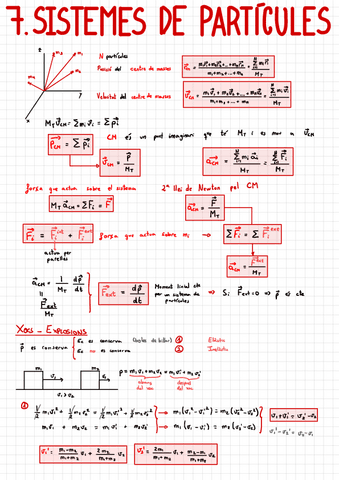 7. SISTEMES DE PARTÍCULES
z
m₁
m₂
m₃
x
y
N partícules
Posició del centre de masses
r⃗CM = (m₁r⃗₁ + m₂r⃗₂ + ... + mₙr⃗ₙ) / (m₁ + m₂ + ... + mₙ) = Σ mᵢ r⃗ᵢ / MT
Velocitat del centre de masses
v⃗CM = (m₁v⃗₁ + m₂v⃗₂ + ... + mₙv⃗ₙ) / (m₁ + ... + mₙ) = Σ mᵢ v⃗ᵢ / MT
MT v⃗CM = Σ mᵢ v⃗ᵢ = Σ p⃗ᵢ
P⃗CM = Σ p⃗ᵢ
CM és un punt imaginari que té MT i es mou a v⃗CM
v⃗CM = P⃗ / MT
a⃗CM = Σ mᵢ a⃗ᵢ / MT = Σ F⃗ᵢ / MT
força que actua sobre el sistema
2ª llei de Newton pel CM
MT a⃗CM = Σ F⃗ᵢ = F⃗
a⃗CM = F⃗ / MT
F⃗ᵢ = F⃗ᵢ int + F⃗ᵢ ext
força que actua sobre mᵢ →
Σ F⃗ᵢ = Σ F⃗ᵢ ext
actua per parelles
a⃗CM = F⃗ ext / MT
a⃗CM = 1/MT dp⃗/dt
= F⃗ext / MT
F⃗ext = dp⃗/dt
Moment lineal
per un sistema de
partícules
⇒ Si F⃗ext = 0 ⇒ p⃗ és cte
XOCS - EXPLOSIONS
p⃗ es conserva
Ec es conserva (boles de billar) ① Elàstic
Ec no es conserva ② Inelàstic
m₁
v₁
m₂
v₂
v₁ > v₂
p = m₁v₁ + m₂v₂ = m₁v₁' + m₂v₂'
abans del xoc
després del xoc
① 1/2 m₁v₁² + 1/2 m₂v₂² = 1/2 m₁v₁'² + 1/2 m₂v₂'² → m₁(v₁² - v₁'²) = m₂(v₂'² - v₂²)
m₁v₁ + m₂v₂ = m₁v₁' + m₂v₂' → m₁(v₁ - v₁') = m₂(v₂' - v₂)
v₁ + v₁' = v₂' + v₂
v₁' - v₂' = v₂ - v₁
v₁' = (m₁ - m₂)/(m₁ + m₂) v₁ + 2m₂/(m₁ + m₂) v₂
v₂' = 2m₁/(m₁ + m₂) v₁ + (m₂ - m₁)/(m₁ + m₂) v₂